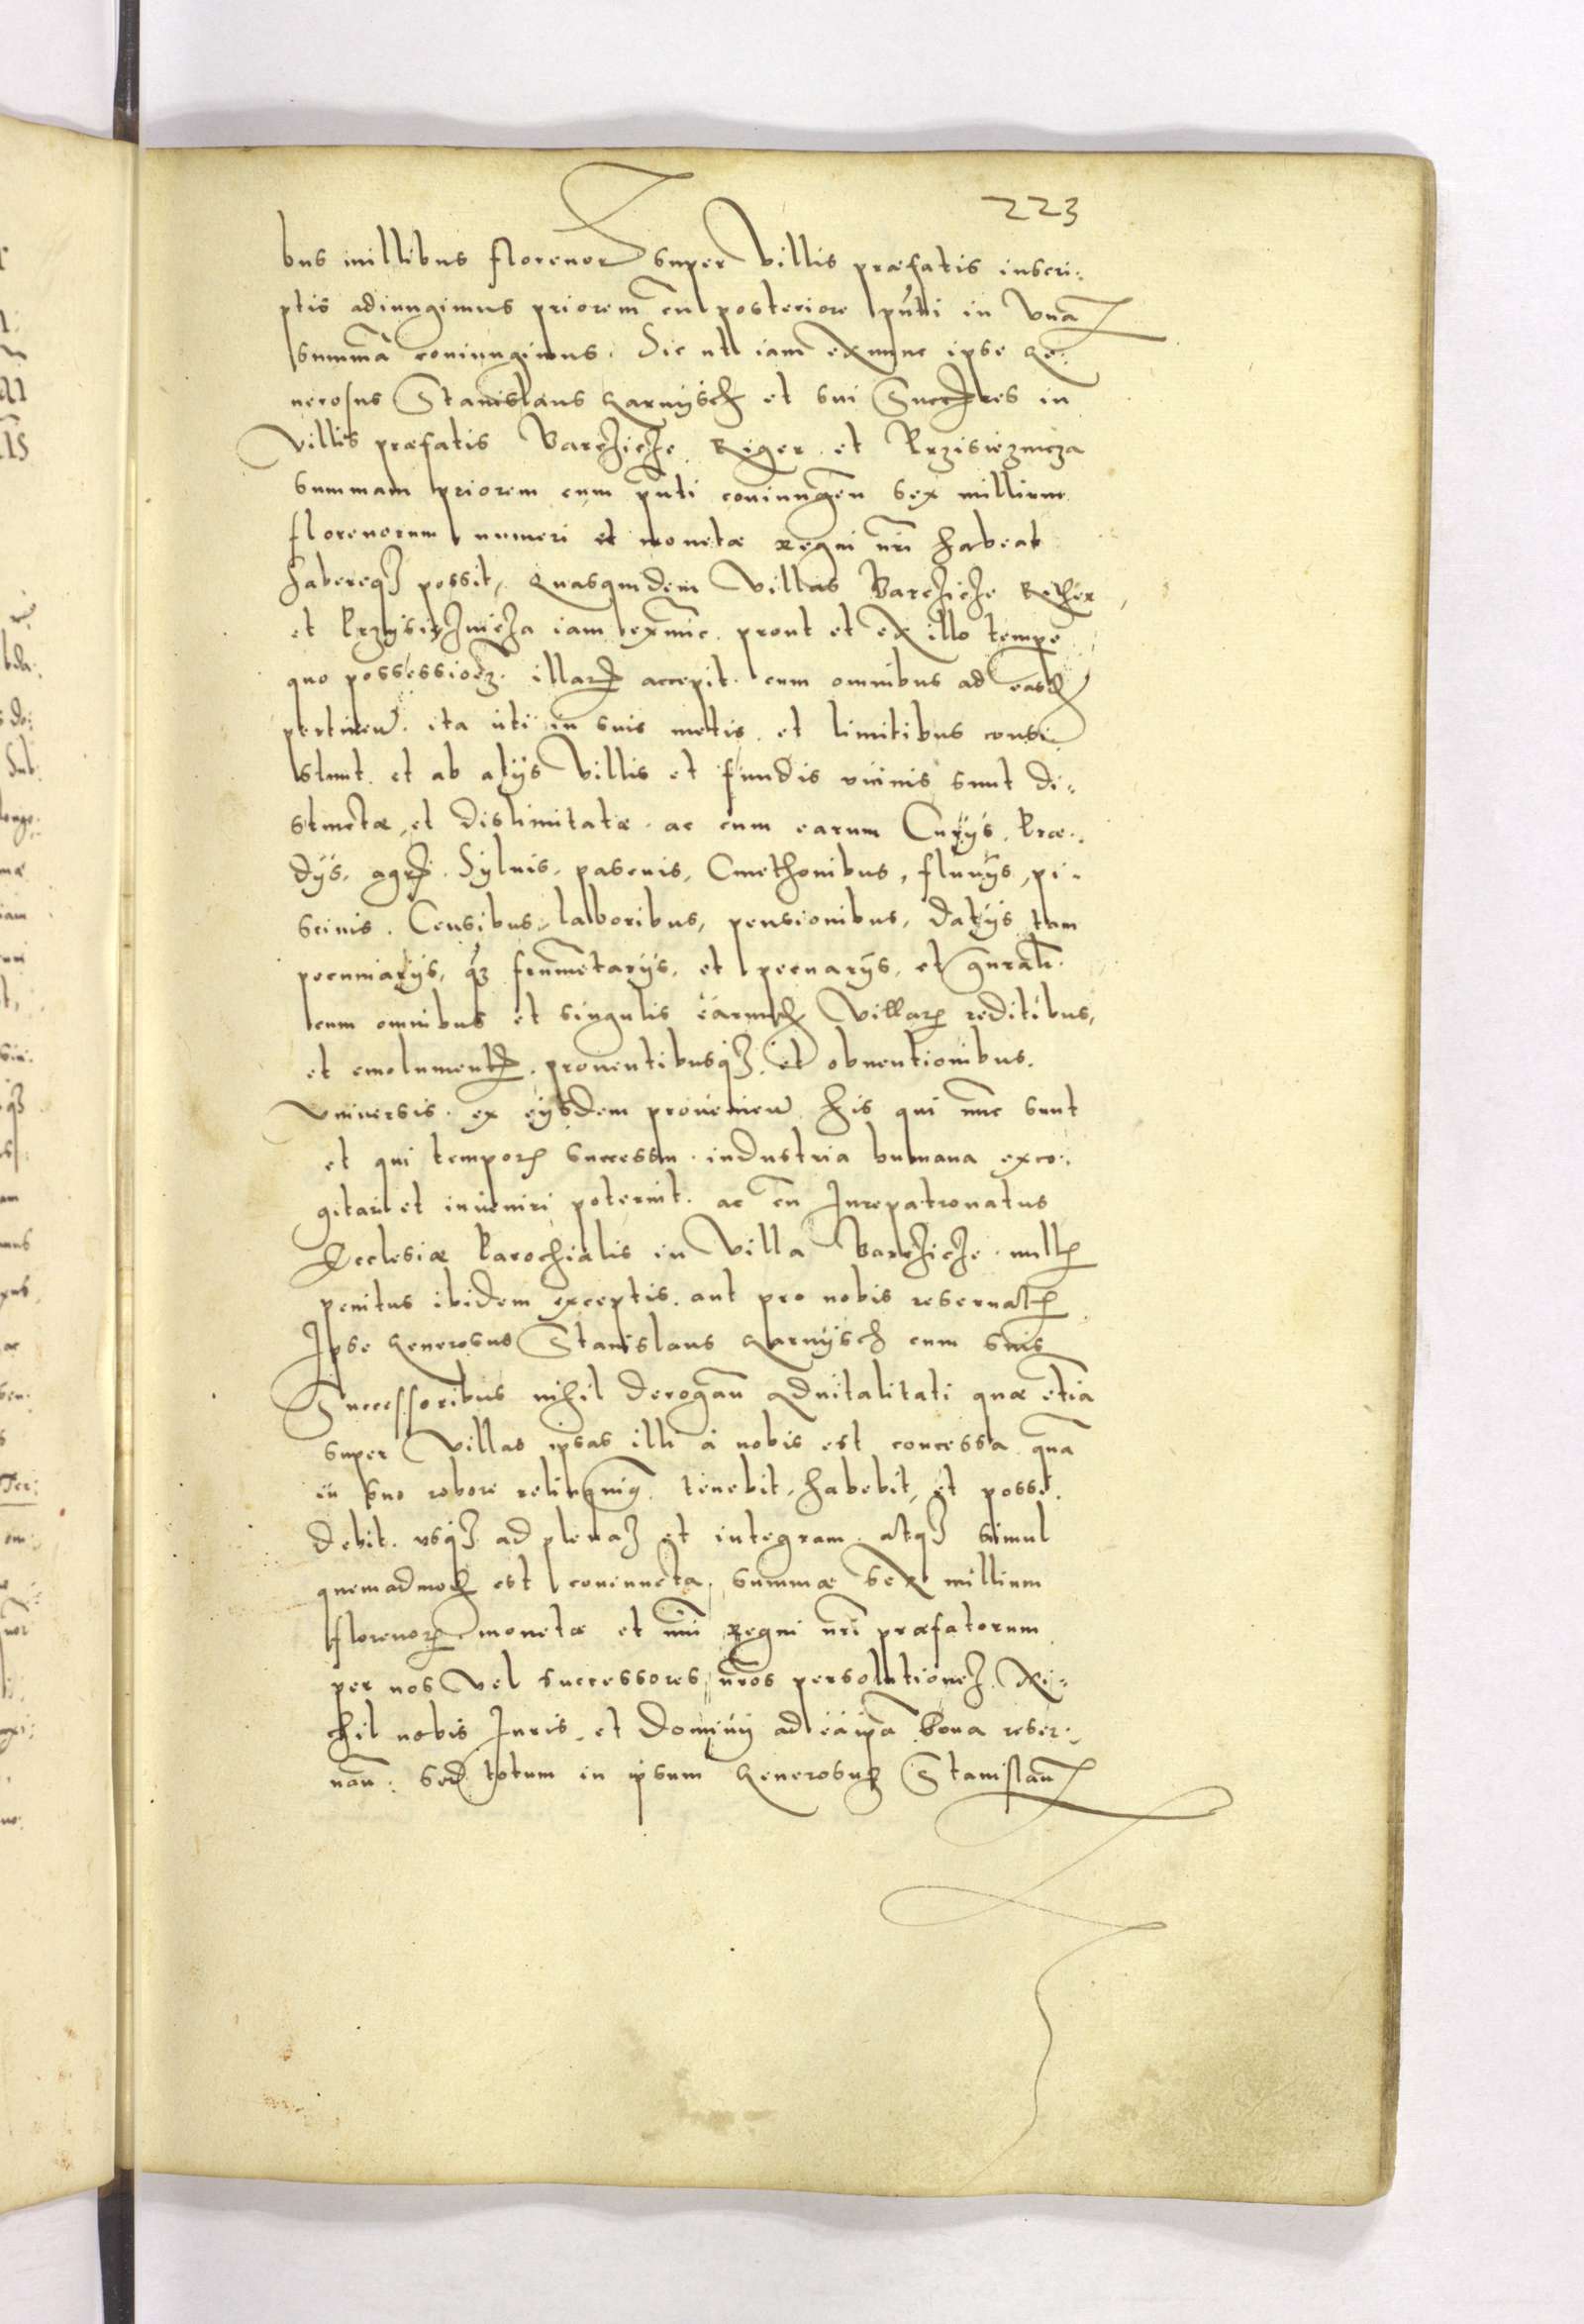 223
bus millibus florenor super Villis præfatis inscri:
ptis adiungimus priorem cu posteriore pnti in Vna
summā coniungimus. Sic ut iam exnunc ipse Ge:
nerosus Stanislaus Karnijsch et sui Succes̄res in
Villis præfatis Barczicze Riger et Przisieznicza
summam priorem cum pnti coniungen̄ sex millium
florenorum numeri et monetæ regni nri habeat
habereqz possit, Quasquidem Villas Barczicze Rither
et Przysieznicza iam exnūc prout et ex illo tempe
quo possessioēz illar accepit. cum omnibus ad easd
pertinen̄. ita uti in suis metis et limitibus consi
stunt et ab alijs Villis et fundis uicinis sunt di:
stinctæ, et dislimitatæ. ac cum earum Curijs, Præ:
dijs, agris. Syluis, pascuis, Cmethonibus, fluuijs, pi:
scinis. Censibus, laboribus, pensionibus, datijs tam
pecuniarijs, qz frumētarijs, et pecuarijs, et gnrali
cum omnibus et singulis earund Villar reditibus,
et emolument. prouentibusqz et obuentionibus.
Vniuersis. ex eijsdem prouenien̄ his qui nūc sunt
et qui tempor successu. industria humana exco:
gitari et inueniri poterint. ac cū Jurepatronatus
Ecclesiæ Parochialis in Villa Barczicze. null
penitus ibidem exceptis. aut pro nobis reseruat
Ipse Generosus Stanislaus Karnijsch cum suis
Successoribus nihil derogan̄ Aduitalitati quæ etiā
super Villas ipsas illi à nobis est concessa quā
in suo robore relinquim. tenebit, habebit, et possi
debit. usqz ad plenaz et integram. atqz simul
quemadmod est coniuncta, summæ sex millium
florenor monetæ et nūi Regni nri præfatorum
per nos Vel successores nros persolutionez. Ni:
chil nobis Juris et Dominij ad ea ipā bona reser:
uan̄. sed totum in ipsum Generosum Stanislau